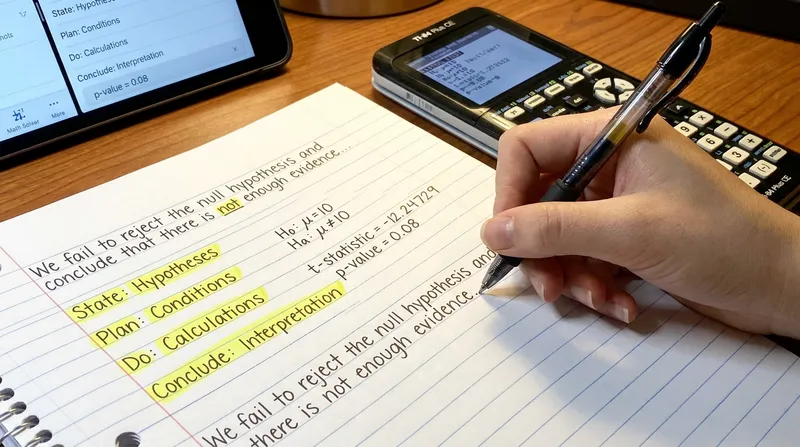 State: Hypothes
Plan: Conditions
Do: Calculations
Conclude: Interpretation
p-value = 0.08
Math Solver
More
TI-84 Plus CE
We fail to reject the null hypothesis and
conclude that there is not enough evidence...
H₀: μ = 10
Hₐ: μ ≠ 10
t-statistic = -12.24729
p-value = 0.08
State: Hypotheses
Plan: Conditions
Do: Calculations
Conclude: Interpretation
We fail to reject the null hypothesis and
there is not enough evidence...